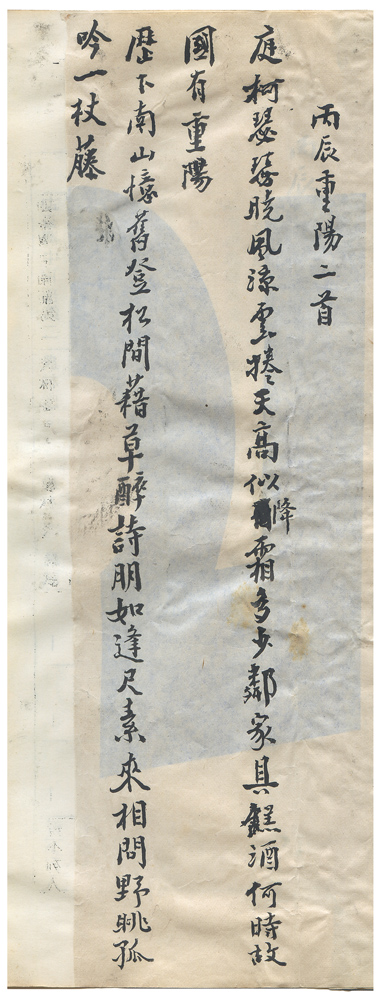 丙辰重陽二首
庭柯瑟瑟曉風涼雲捲天高似降霜多少鄰家具糕酒何時故
國有重陽
歷下南山憶舊登松間藉草醉詩朋如逢尺素來相問野眺孤
吟一杖藤